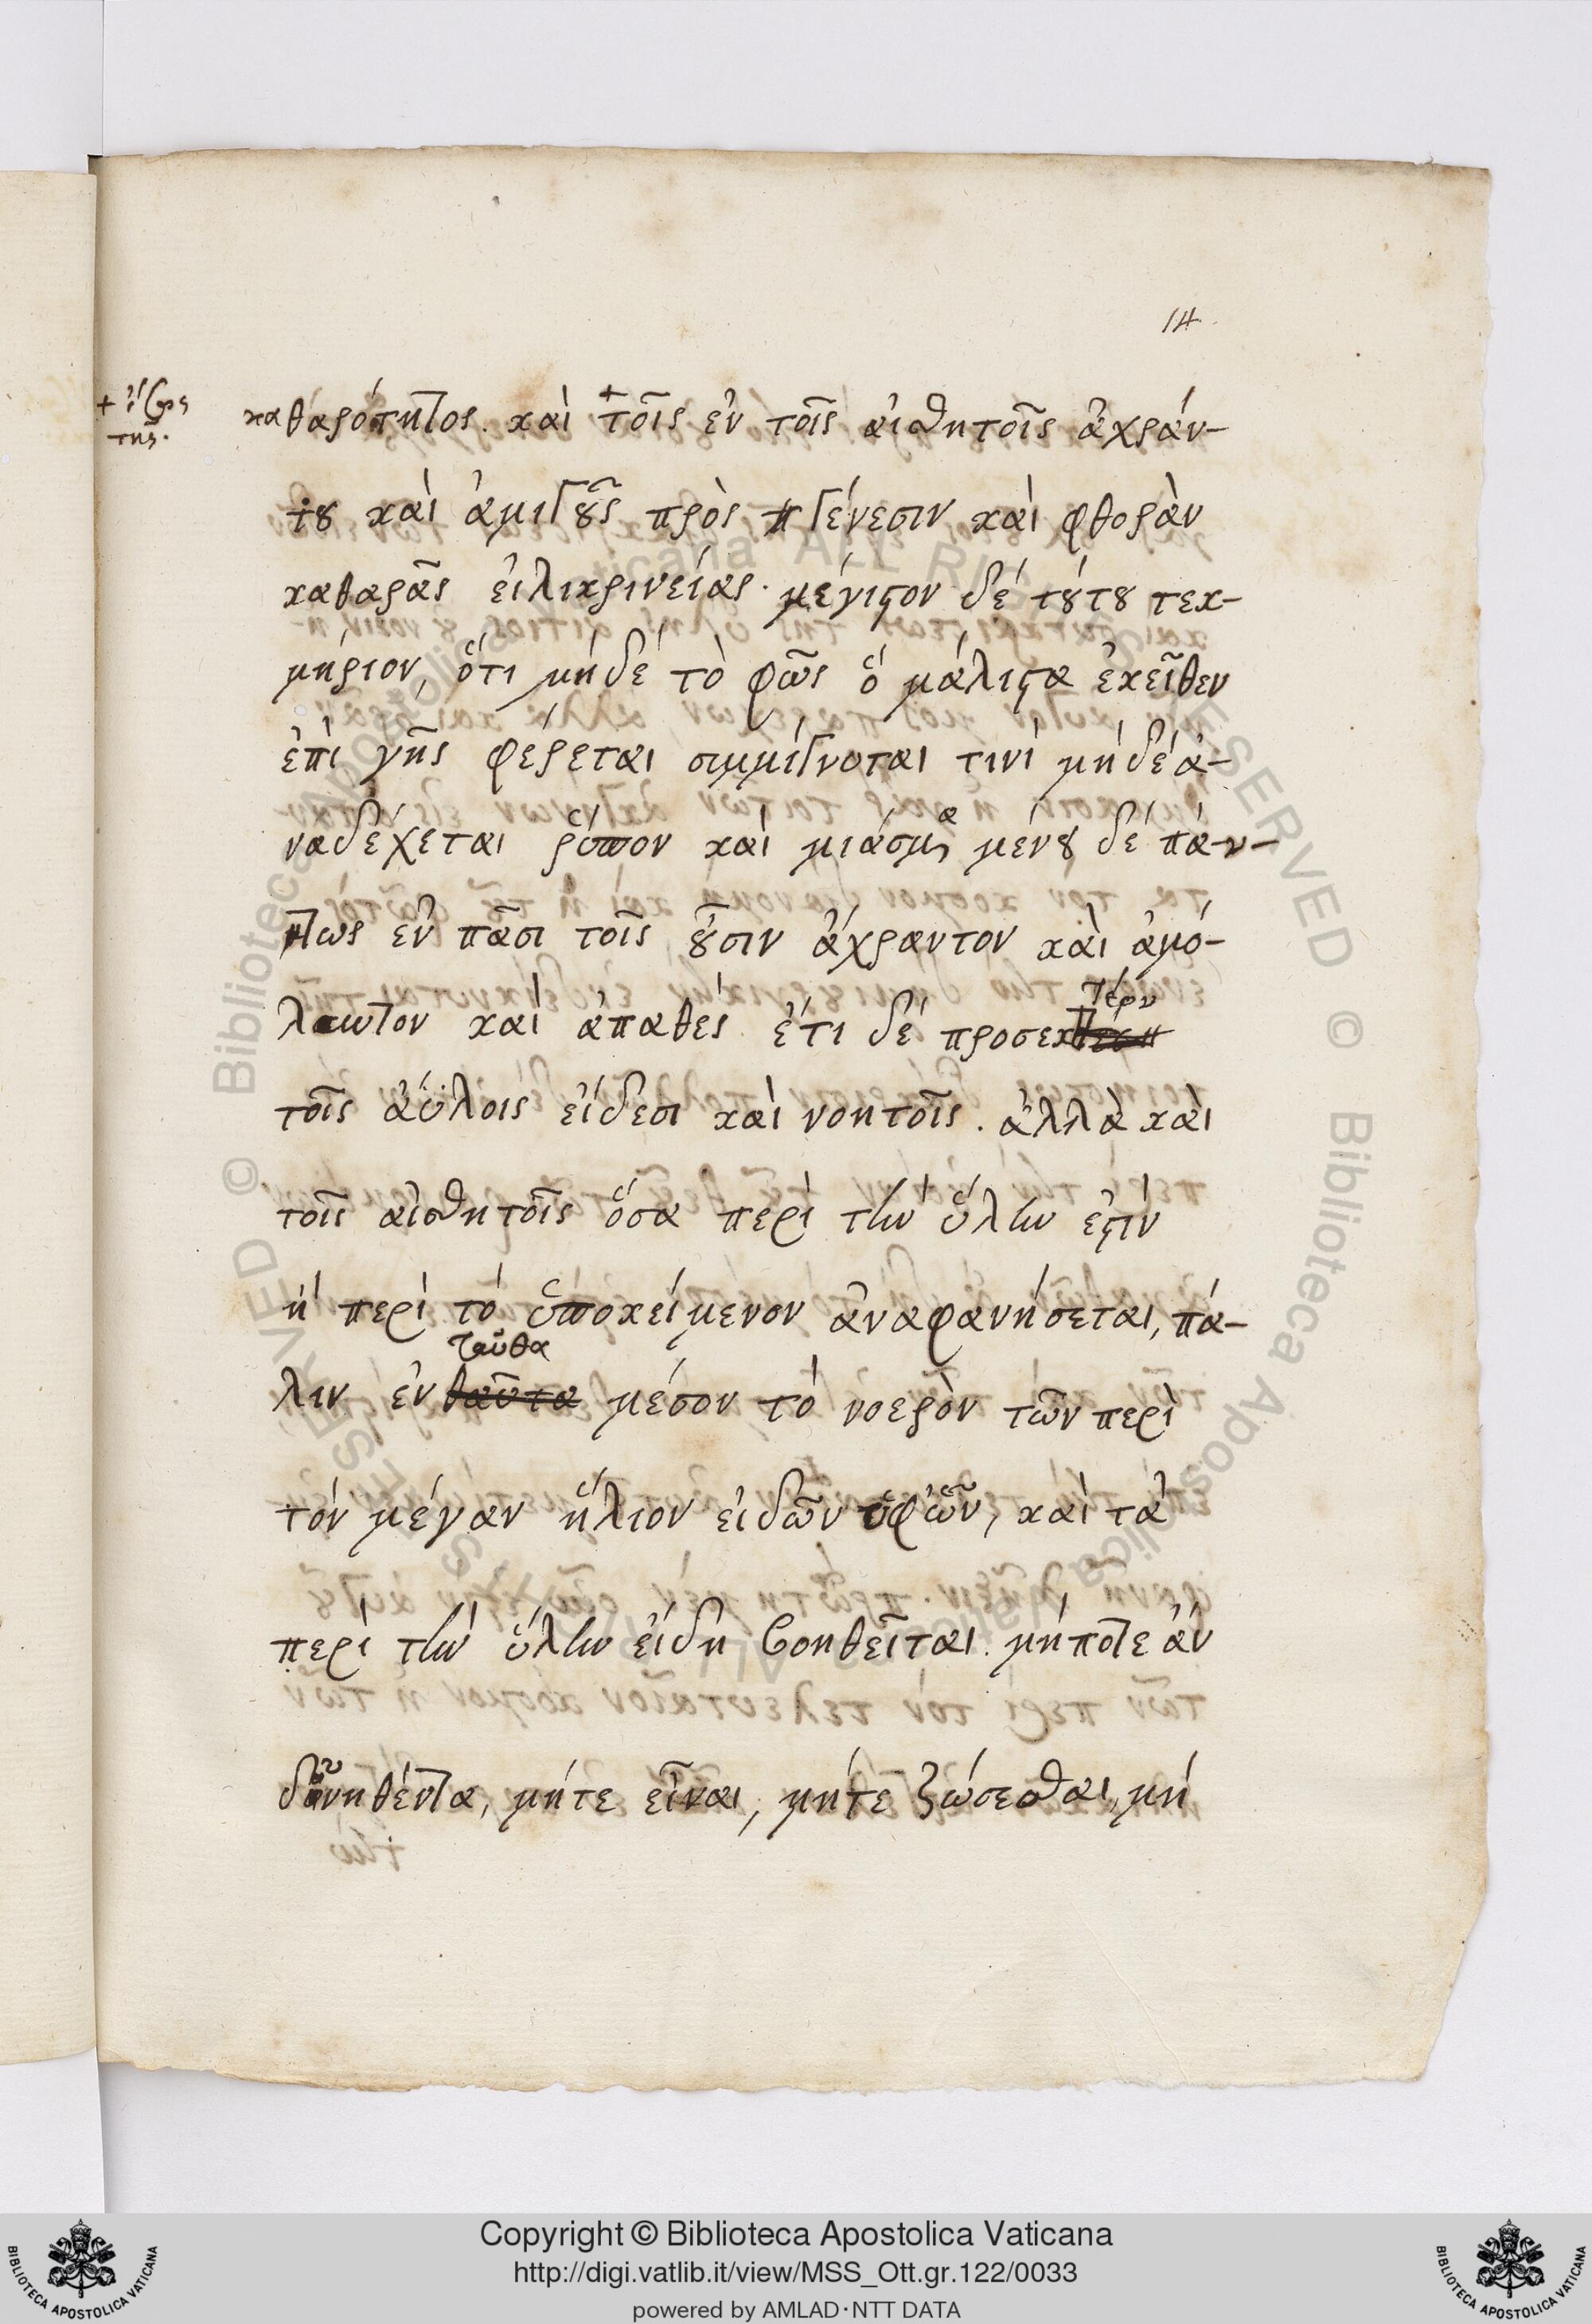 14
+ ἤγουν
τῆς.
καθαρότητος. καὶ +τοῖς ἐν τοῖς αἰσθητοῖς ἀχράν-
του καὶ ἀμιγοῦς πρὸς γένεσιν καὶ φθορὰν
καθαρᾶς εἰλικρινείας. μέγιστον δέ τούτου τεκ-
μήριον, ὅτι μήδέ τὸ φῶς ὅ μάλιστα ἐκεῖθεν
ἐπὶ γῆς φέρεται συμμίγνυται τινὶ μήδέ ἀ-
ναδέχεται ῥύπον καὶ μιάσμα μένου δέ πάν-
τως ἐν πᾶσι τοῖς οὖσιν ἄχραντον καὶ ἀμό-
λυντον καὶ ἀπαθές ἔτι δέ προσεκτέον
τοῖς ἀύλοις εἴδεσι καὶ νοητοῖς. ἀλλὰ καὶ
τοῖς αἰσθητοῖς ὅσα περὶ τὴν ὕλην ἐστὶν
ἡ περὶ τό ὑποκείμενον ἀναφανήσεται, πά-
λιν ἐνταῦθα θαῦτα μέσον τό νοερὸν τῶν περὶ
τόν μέγαν ἥλιον εἰδῶν ὑφ' ὧν, καὶ τὰ
περὶ τὴν ὕλην εἴδη βοηθεῖται. μήποτε ἀν
δυνηθέντα, μήτε εἶναι, μήτε ζώσεσθαι, μή
Copyright © Biblioteca Apostolica Vaticana
http://digi.vatlib.it/view/MSS_Ott.gr.122/0033
powered by AMLAD·NTT DATA